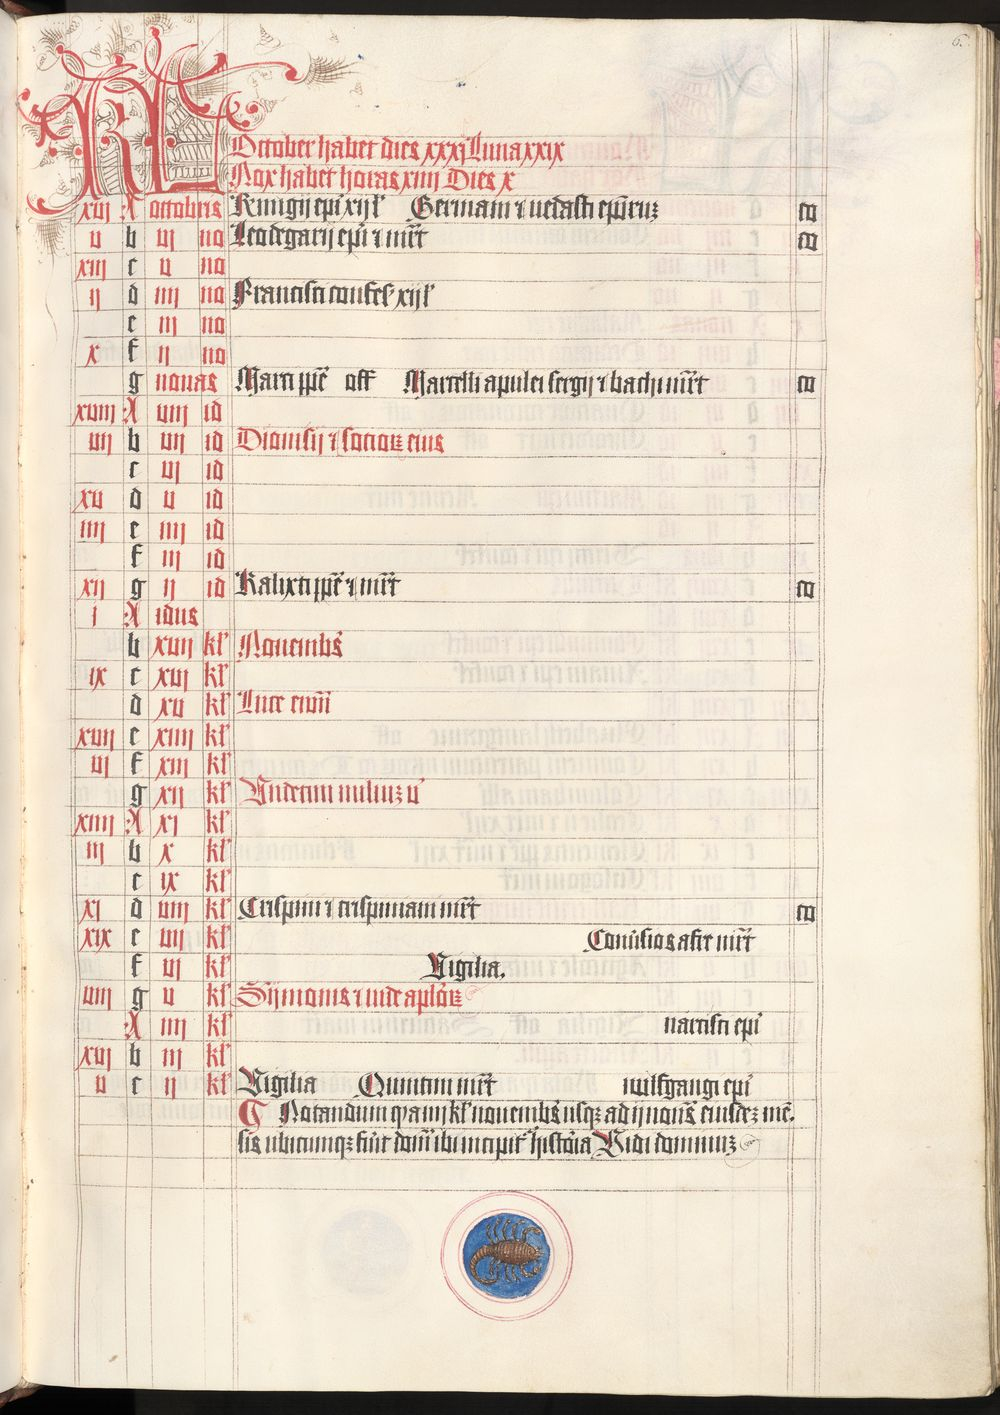 6.
KL
October habet dies xxxj Luna xxix
Nox habet horas xiiij Dies x
xvj A octobris Remigij epi xij l' Germani ⁊ vedasti eporuz co
v b vj no Leodegarij epi ⁊ mrt co
xiij c v no
ij d iiij no Francisci confes' xij l'
e iij no
x f ij no
g nonas Marci ppe off Marcelli apulei sergij ⁊ bachi mrt co
xviij A viij id
vij b vij id Dionisij ⁊ socioꝝ eius
c vj id
xv d v id
iiij e iiij id
f iij id
xij g ij id Kalixti ppe ⁊ mrt co
j A idus
b xvij kl' Nouembs
ix c xvj kl'
d xv kl' Luce ewn
xvij e xiiij kl'
vj f xiij kl'
g xij kl' Undecim miliuz v'
xiiij A xj kl'
iij b x kl'
c ix kl'
xj d viij kl' Crispini ⁊ crispiniani mrt co
xix e vij kl' afit mrt
f vj kl' Vigilia.
viij g v kl' Sijmonis ⁊ iude aploꝝ
A iiij kl' narcisci epi
xvj b iij kl'
v c ij kl' Vigilia Quintini mrt wlfgangi epi
Notandum ꝙ a iiij kl' nouembs usqꝫ ad ij nons eiusdeꝫ men
sis ubicumqꝫ fuit dom ibi incipit' histoia Vidi dominuꝫ